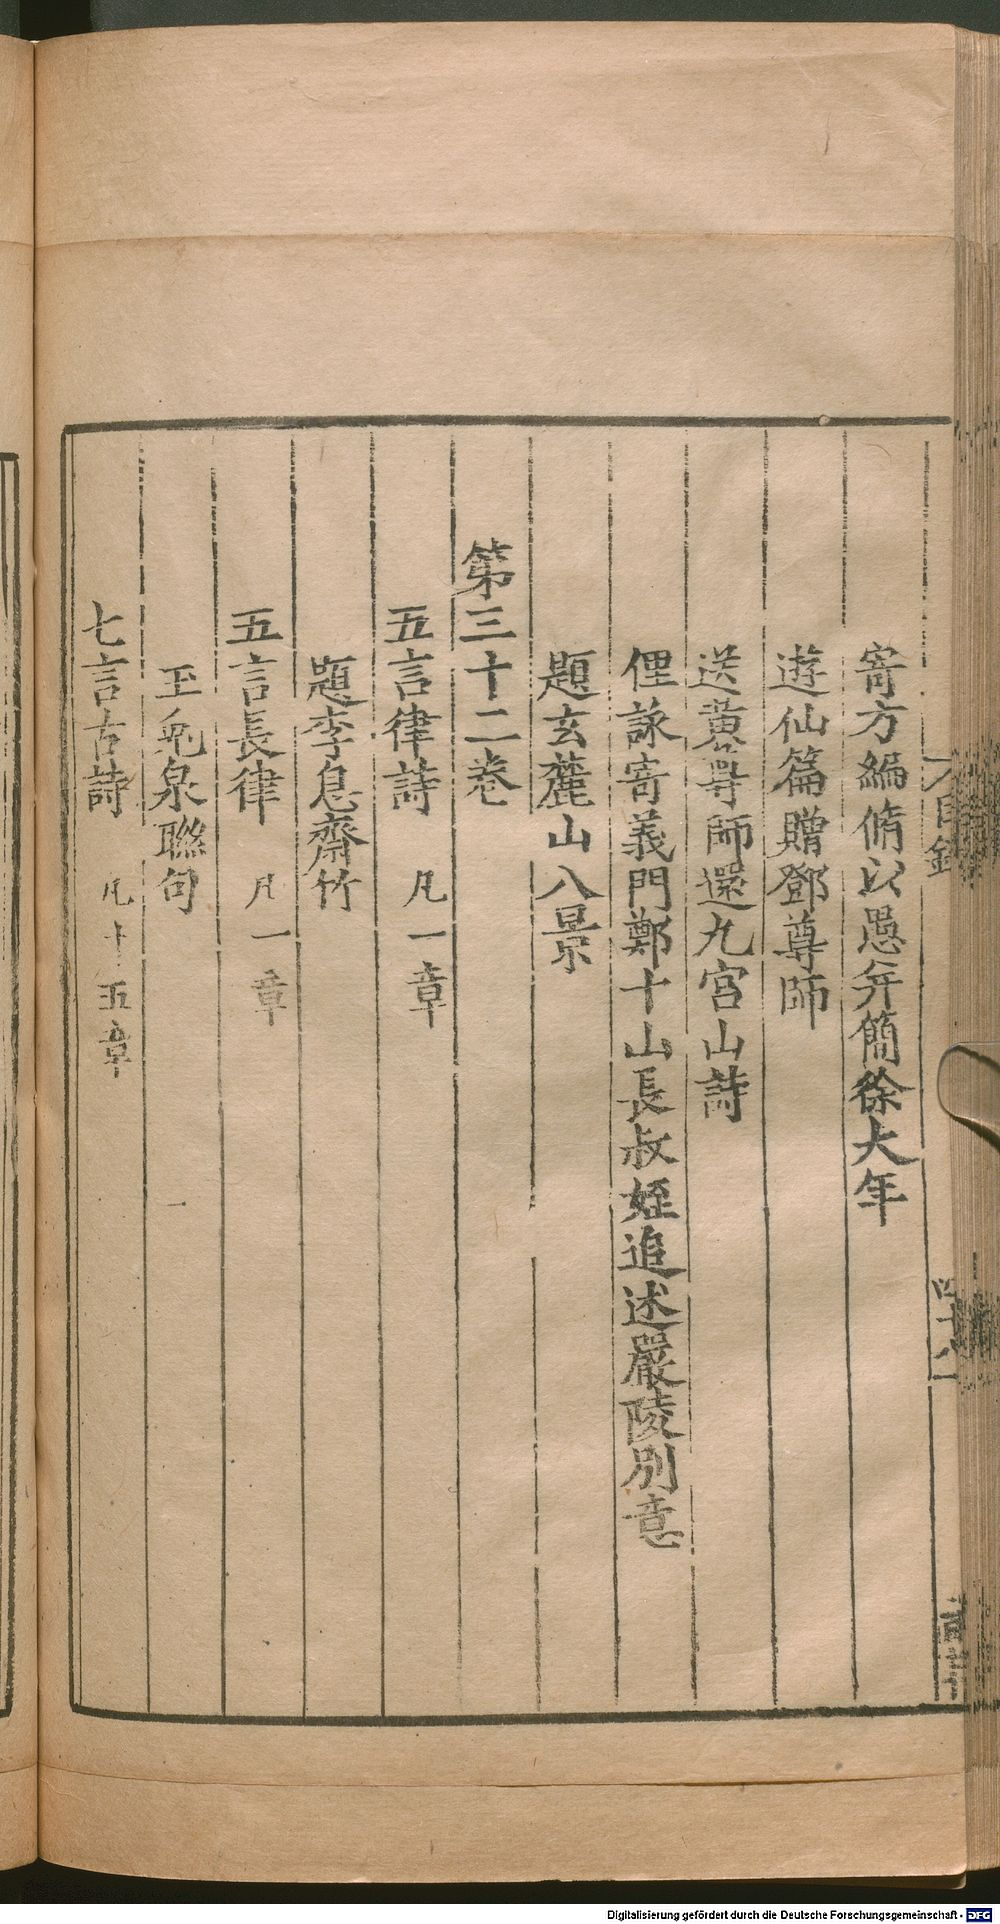 目錄
四十八
寄方編脩以愚并簡徐大年
遊仙篇贈鄧尊師
送黃尊師還九宮山詩
俚詠寄義門鄭十山長叔姪追述嚴陵別意
題玄麓山八景
第三十二卷
五言律詩 凡一章
題李息齋竹
五言長律 凡一章
玉兔泉聯句
七言古詩 凡十五章
Digitalisierung gefördert durch die Deutsche Forschungsgemeinschaft - DFG